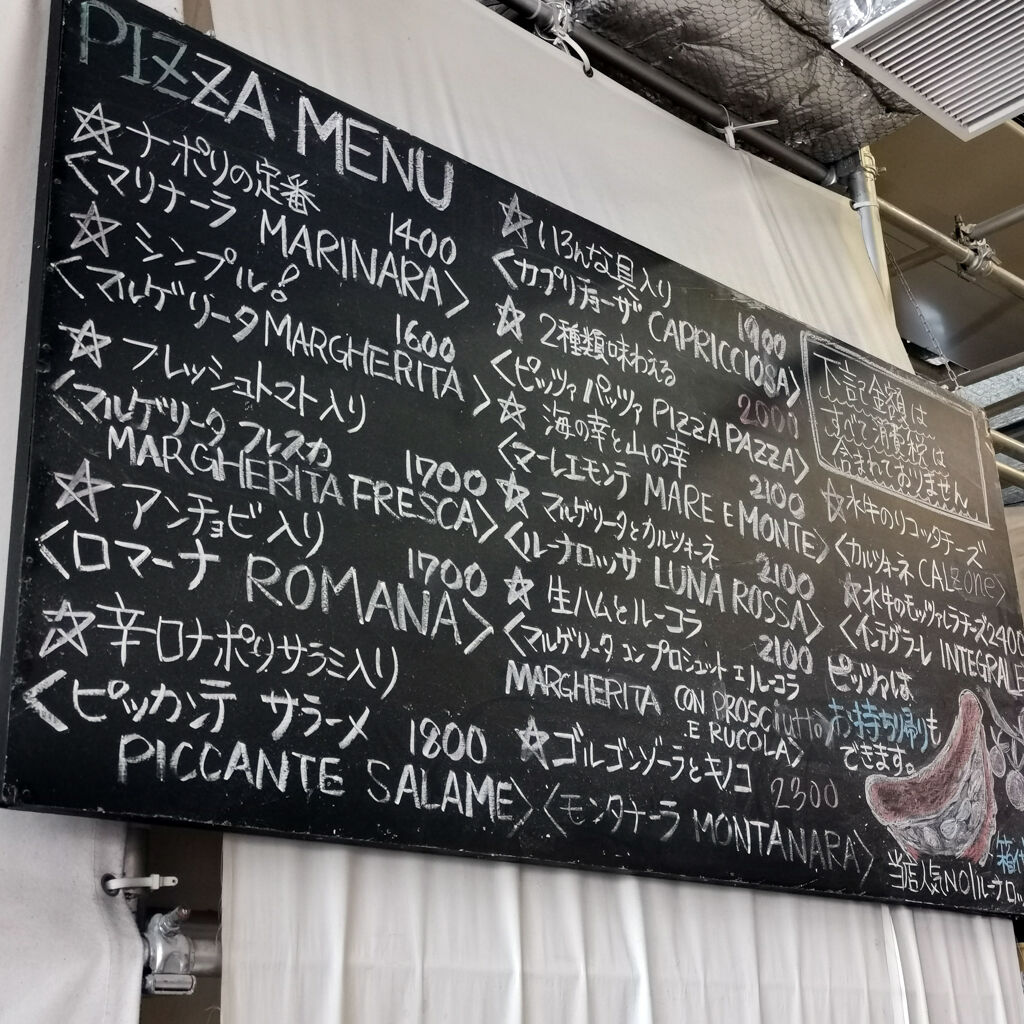 PIZZA MENU
☆ナポリの定番
1400
<マリナーラ MARINARA>
☆シンプル!
1600
<マルゲリータ MARGHERITA>
☆フレッシュトマト入り
1700
<マルゲリータ フレスカ
MARGHERITA FRESCA>
☆アンチョビ入り
1700
<ロマーナ ROMANA>
☆辛口ナポリサラミ入り
<ピッカンテ サラーメ 1800
PICCANTE SALAME>
☆いろんな具入り
1900
<カプリチョーザ CAPRICCIOSA>
☆2種類味わえる
2000
<ピッツァ パッツァ PIZZA PAZZA>
☆海の幸と山の幸
2100
<マーレエモンテ MARE E MONTE>
☆マルゲリータとカルツォーネ
2100
<ルーナロッサ LUNA ROSSA>
☆生ハムとルーコラ
2100
<マルゲリータ コンプロシュット エ ルーコラ
MARGHERITA CON PROSCIUTTO
E RUCOLA>
☆ゴルゴンゾーラとキノコ
2300
<モンタナーラ MONTANARA>
下記金額は
すべて消費税は
含まれておりません
☆水牛のリコッタチーズ
<カルツォーネ CALZONE>
☆水牛のモッツァレラチーズ2400
<インテグラーレ INTEGRALE
ピッツァは
お持ち帰りも
できます。
箱代
当店人気NO1ルーナロッ